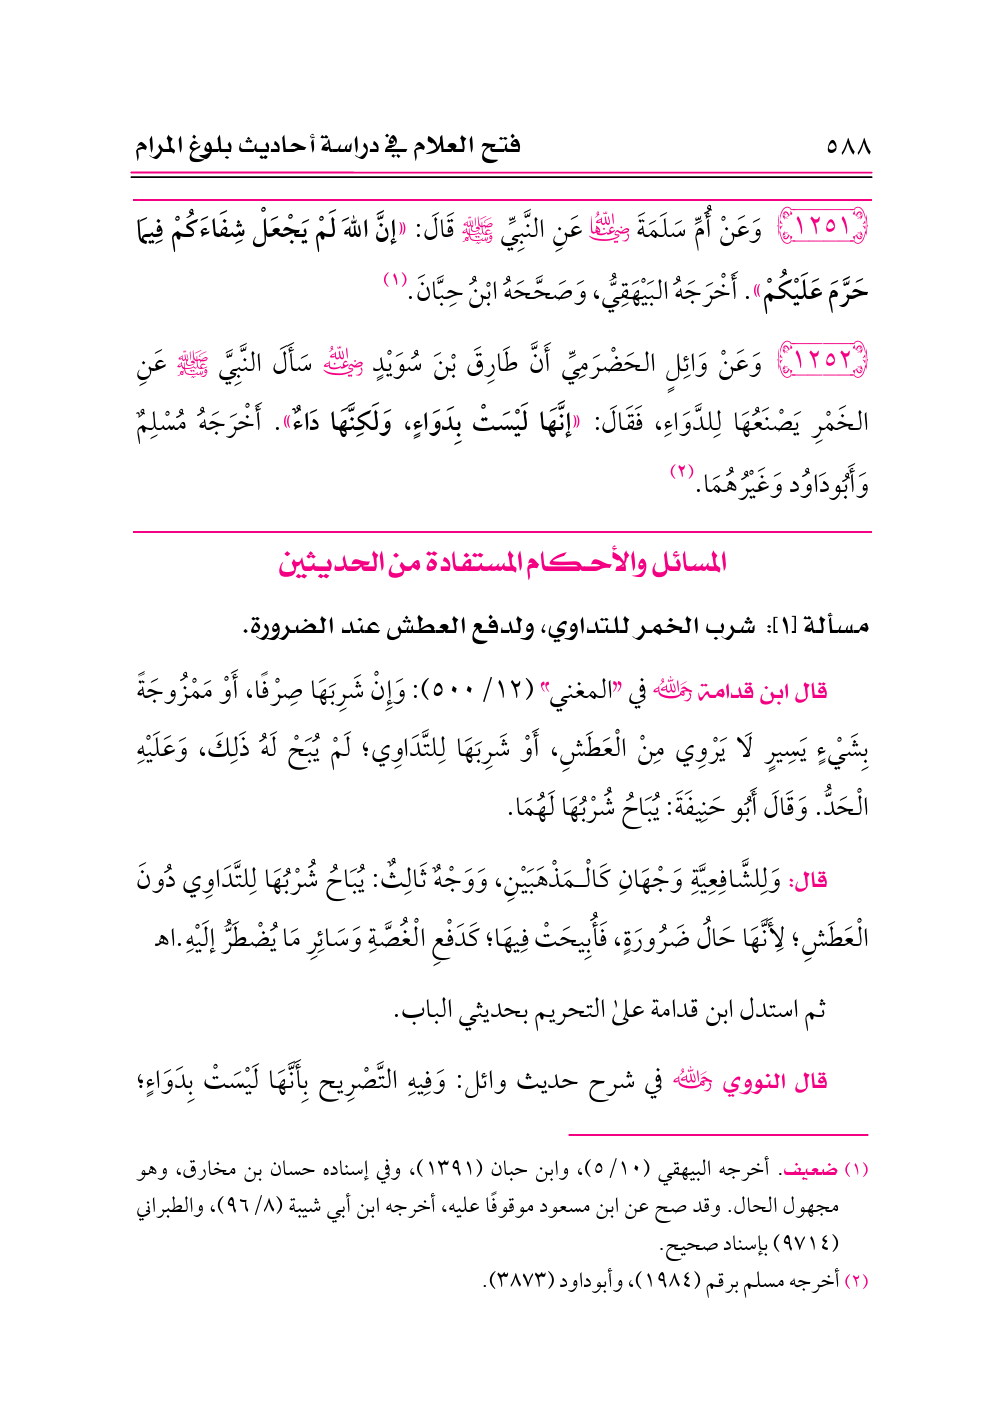 ٥٨٨ فتح العلام في دراسة أحاديث بلوغ المرام
﴿١٢٥١﴾ وَعَنْ أُمِّ سَلَمَةَ رضي الله عنها عَنِ النَّبِيِّ ﷺ قَالَ: «إنَّ اللهَ لَمْ يَجْعَلْ شِفَاءَكُمْ فِيمَا
حَرَّمَ عَلَيْكُمْ». أَخْرَجَهُ البَيْهَقِيُّ، وَصَحَّحَهُ ابْنُ حِبَّانَ.(١)
﴿١٢٥٢﴾ وَعَنْ وَائِلٍ الحَضْرَمِيِّ أَنَّ طَارِقَ بْنَ سُوَيْدٍ رضي الله عنه سَأَلَ النَّبِيَّ ﷺ عَنِ
الخَمْرِ يَصْنَعُهَا لِلدَّوَاءِ، فَقَالَ: «إنَّهَا لَيْسَتْ بِدَوَاءٍ، وَلَكِنَّهَا دَاءٌ». أَخْرَجَهُ مُسْلِمٌ
وَأَبُودَاوُد وَغَيْرُهُمَا.(٢)
المسائل والأحكام المستفادة من الحديثين
مسألة [١]: شرب الخمر للتداوي، ولدفع العطش عند الضرورة.
قال ابن قدامة رحمه الله في "المغني" (١٢/ ٥٠٠): وَإِنْ شَرِبَهَا صِرْفًا، أَوْ مَمْزُوجَةً
بِشَيْءٍ يَسِيرٍ لَا يَرْوِي مِنْ الْعَطَشِ، أَوْ شَرِبَهَا لِلتَّدَاوِي؛ لَمْ يُبَحْ لَهُ ذَلِكَ، وَعَلَيْهِ
الْحَدُّ. وَقَالَ أَبُو حَنِيفَةَ: يُبَاحُ شُرْبُهَا لَهُمَا.
قال: وَلِلشَّافِعِيَّةِ وَجْهَانِ كَالْـمَذْهَبَيْنِ، وَوَجْهٌ ثَالِثٌ: يُبَاحُ شُرْبُهَا لِلتَّدَاوِي دُونَ
الْعَطَشِ؛ لِأَنَّهَا حَالُ ضَرُورَةٍ، فَأُبِيحَتْ فِيهَا؛ كَدَفْعِ الْغُصَّةِ وَسَائِرِ مَا يُضْطَرُّ إلَيْهِ.اهـ
ثم استدل ابن قدامة علىٰ التحريم بحديثي الباب.
قال النووي رحمه الله في شرح حديث وائل: وَفِيهِ التَّصْرِيح بِأَنَّهَا لَيْسَتْ بِدَوَاءٍ؛
(١) ضعيف. أخرجه البيهقي (١٠/ ٥)، وابن حبان (١٣٩١)، وفي إسناده حسان بن مخارق، وهو
مجهول الحال. وقد صح عن ابن مسعود موقوفًا عليه، أخرجه ابن أبي شيبة (٨/ ٩٦)، والطبراني
(٩٧١٤) بإسناد صحيح.
(٢) أخرجه مسلم برقم (١٩٨٤)، وأبوداود (٣٨٧٣).